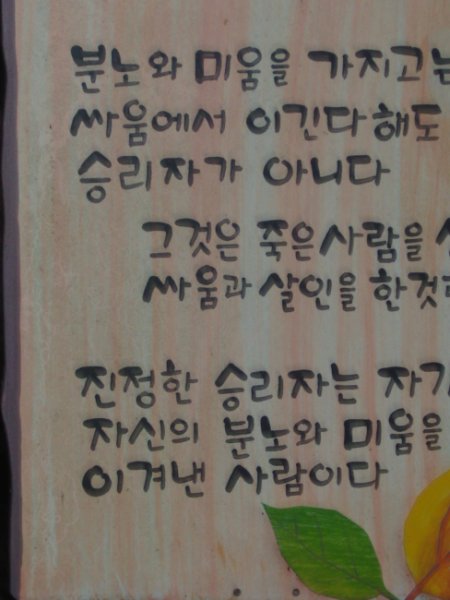 분노와 미움을 가지고는
싸움에서 이긴다해도
승리자가 아니다
그것은 죽은사람을
싸움과 살인을 한것
진정한 승리자는
자신의 분노와 미움을
이겨낸 사람이다